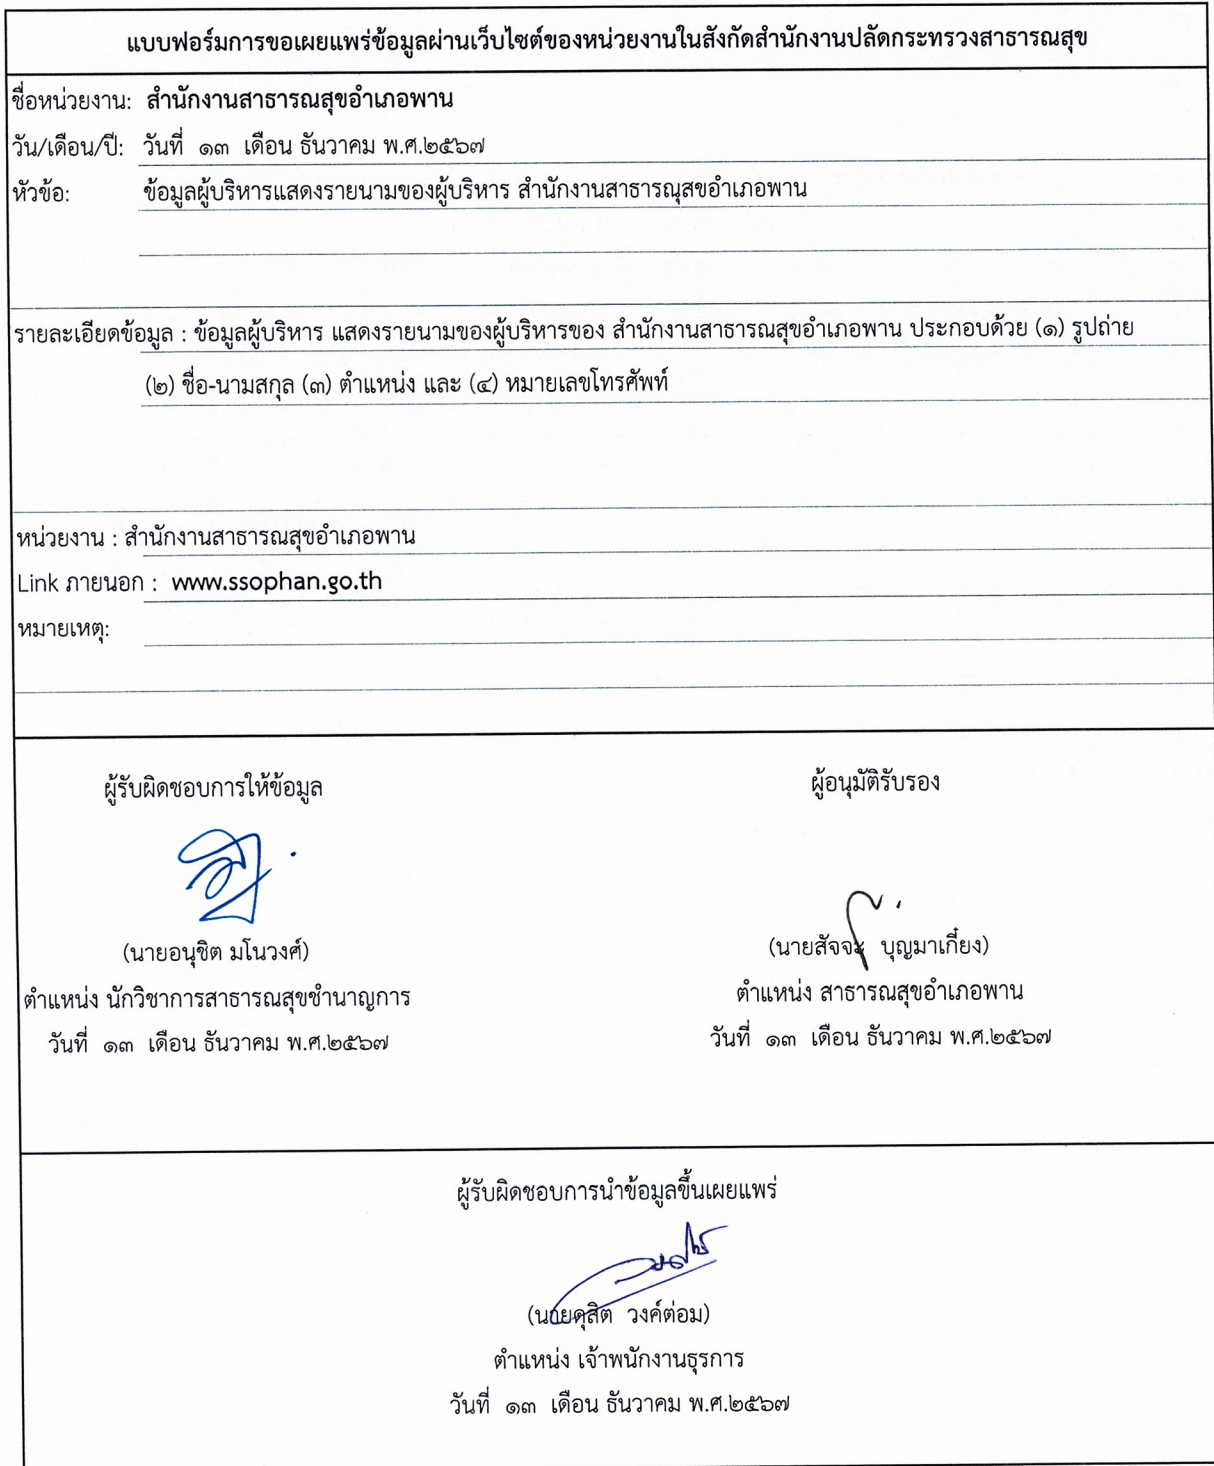 แบบฟอร์มการขอเผยแพร่ข้อมูลผ่านเว็บไซต์ของหน่วยงานในสังกัดสำนักงานปลัดกระทรวงสาธารณสุข
ชื่อหน่วยงาน: สำนักงานสาธารณสุขอำเภอพาน
วัน/เดือน/ปี: วันที่ ๑๓ เดือน ธันวาคม พ.ศ.๒๕๖๗
หัวข้อ: ข้อมูลผู้บริหารแสดงรายนามของผู้บริหาร สำนักงานสาธารณุสขอำเภอพาน
รายละเอียดข้อมูล : ข้อมูลผู้บริหาร แสดงรายนามของผู้บริหารของ สำนักงานสาธารณสุขอำเภอพาน ประกอบด้วย (๑) รูปถ่าย
(๒) ชื่อ-นามสกุล (๓) ตำแหน่ง และ (๔) หมายเลขโทรศัพท์
หน่วยงาน : สำนักงานสาธารณสุขอำเภอพาน
Link ภายนอก : www.ssophan.go.th
หมายเหตุ:
ผู้รับผิดชอบการให้ข้อมูล
(นายอนุชิต มโนวงศ์)
ตำแหน่ง นักวิชาการสาธารณสุขชำนาญการ
วันที่ ๑๓ เดือน ธันวาคม พ.ศ.๒๕๖๗
ผู้อนุมัติรับรอง
(นายสัจจะ บุญมาเกี๋ยง)
ตำแหน่ง สาธารณสุขอำเภอพาน
วันที่ ๑๓ เดือน ธันวาคม พ.ศ.๒๕๖๗
ผู้รับผิดชอบการนำข้อมูลขึ้นเผยแพร่
(นายดุสิต วงค์ต่อม)
ตำแหน่ง เจ้าพนักงานธุรการ
วันที่ ๑๓ เดือน ธันวาคม พ.ศ.๒๕๖๗